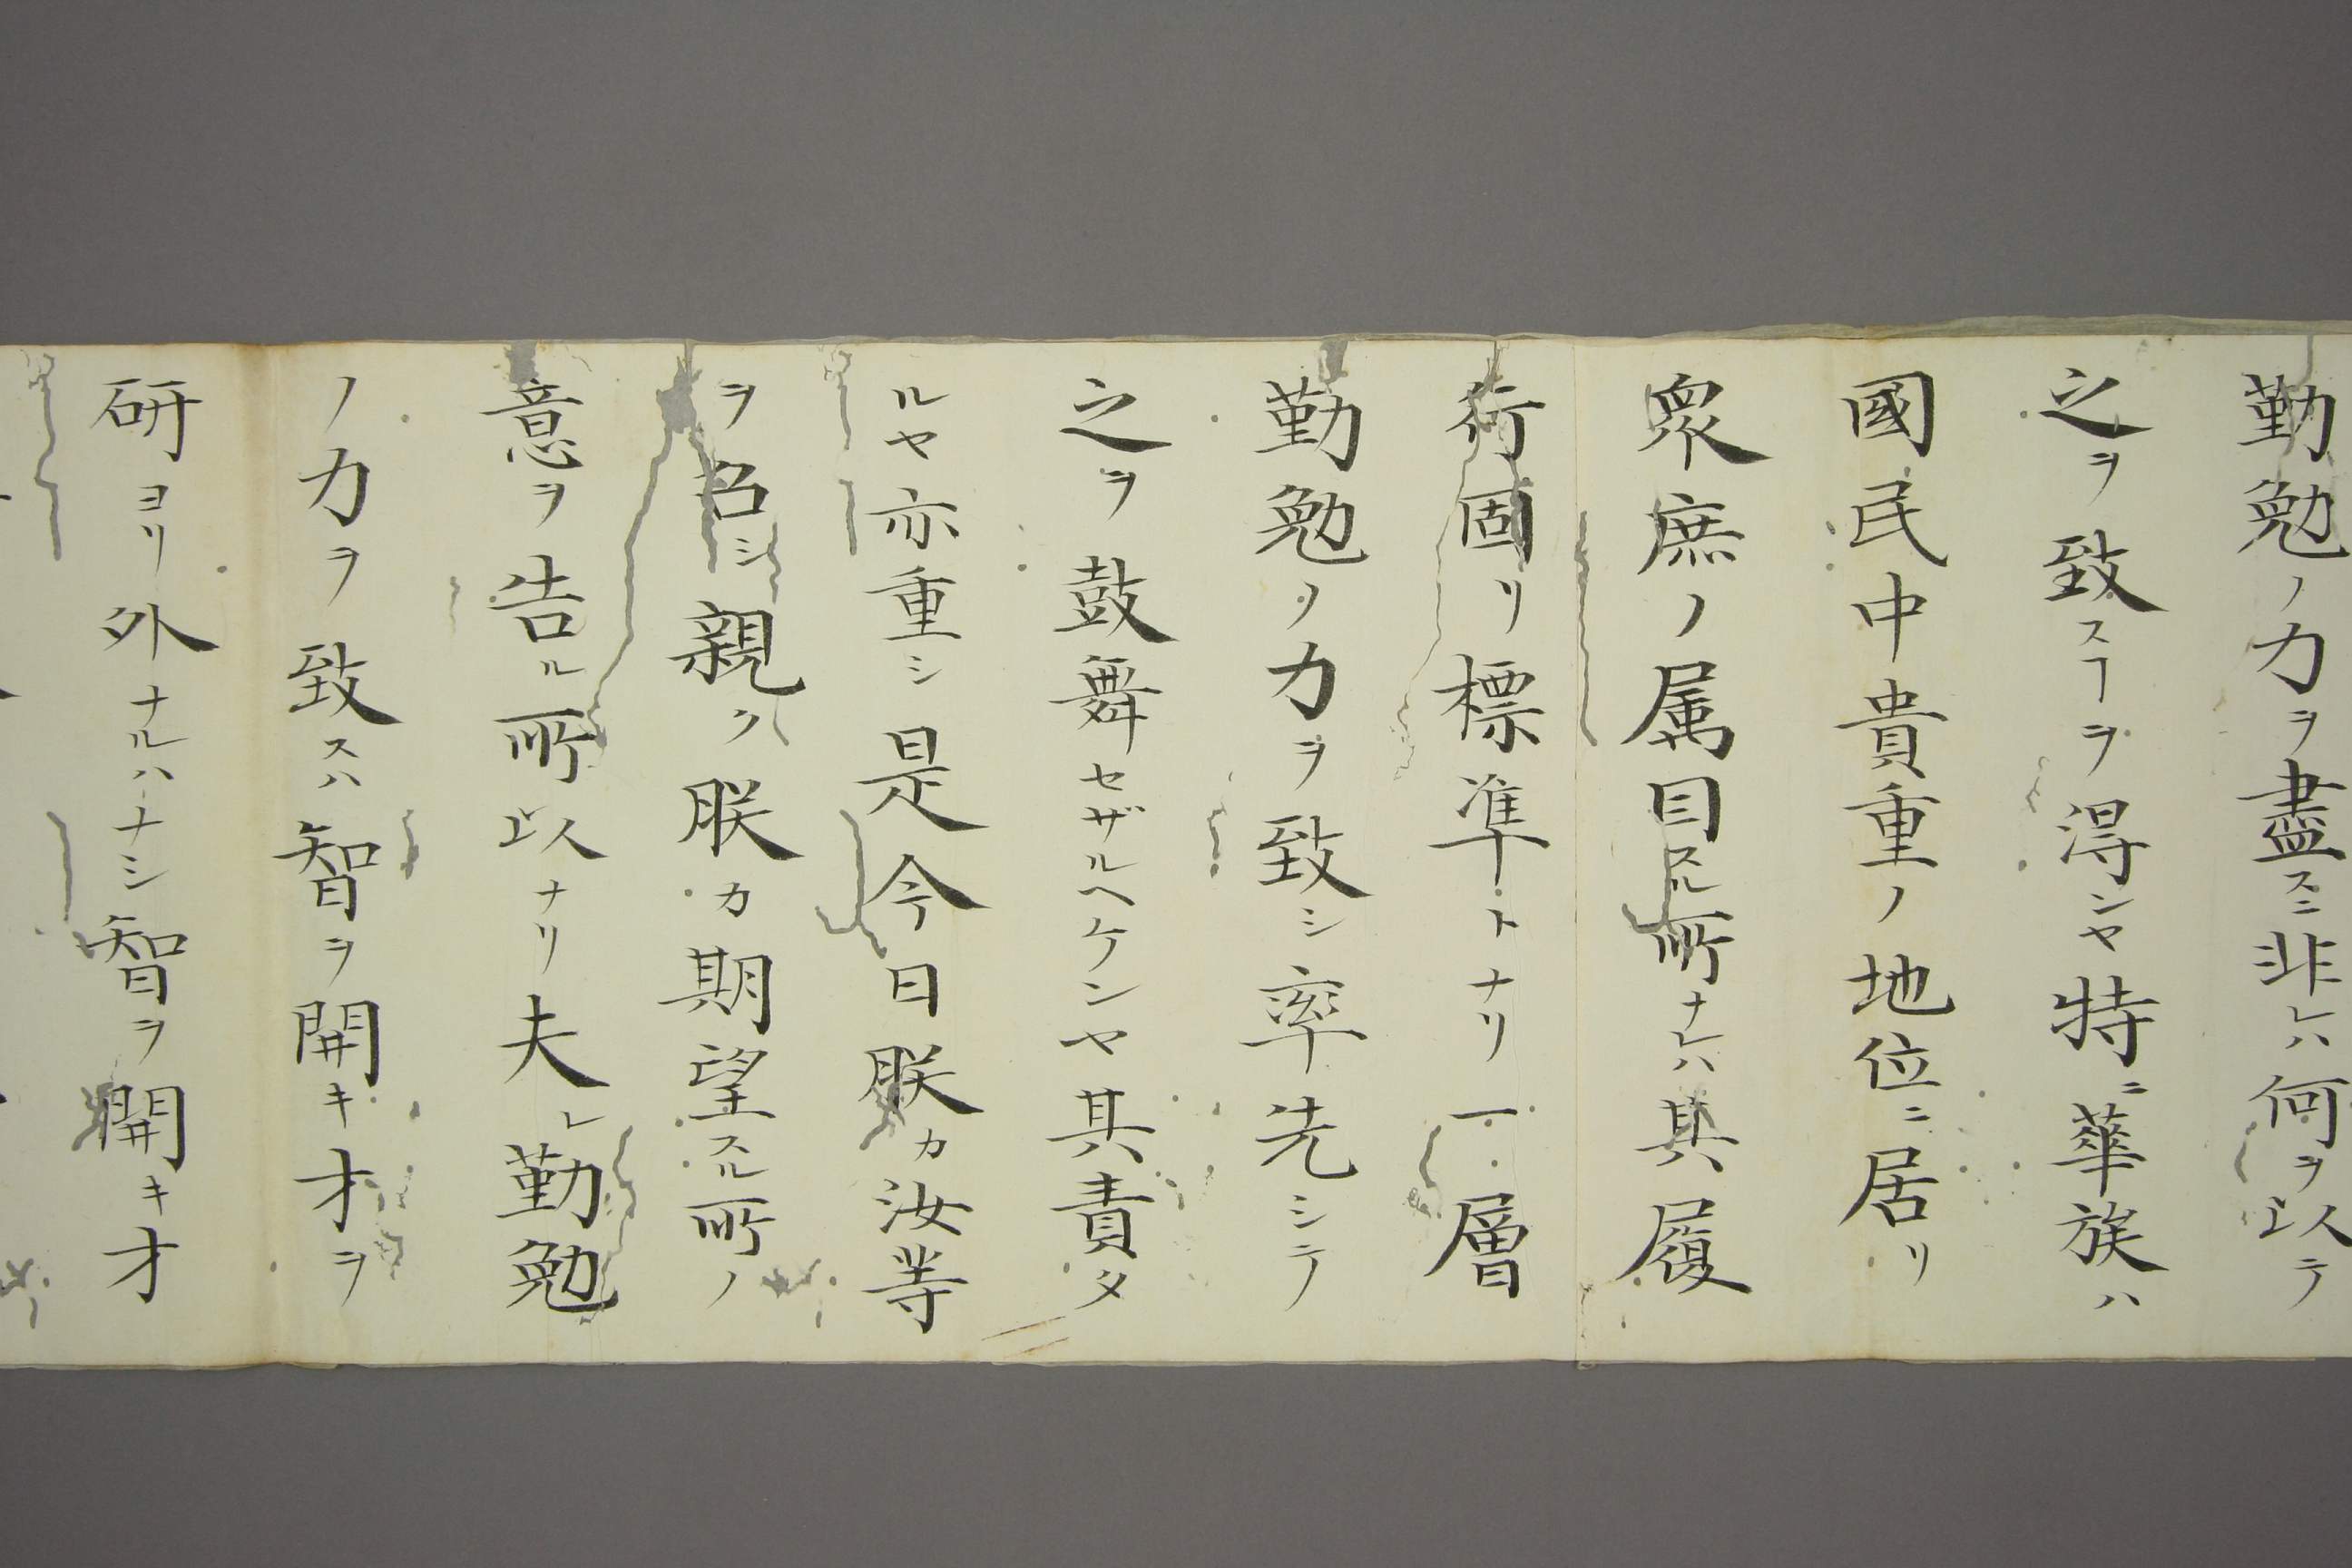 勤勉ノ力ヲ盡スニ非レハ何ヲ以テ
之ヲ致スヿヲ得ンヤ特ニ華族ハ
國民中貴重ノ地位ニ居リ
衆庶ノ属目スル所ナレハ其履
行固リ標準トナリ一層
勤勉ノ力ヲ致シ率先シテ
之ヲ鼓舞セザルヘケンヤ其責タ
ルヤ亦重シ是今日朕カ汝等
ヲ召シ親ク朕カ期望スル所ノ
意ヲ告ル所以ナリ夫レ勤勉
ノ力ヲ致スハ智ヲ開キ才ヲ
研ヨリ外ナルハナシ智ヲ開キ才